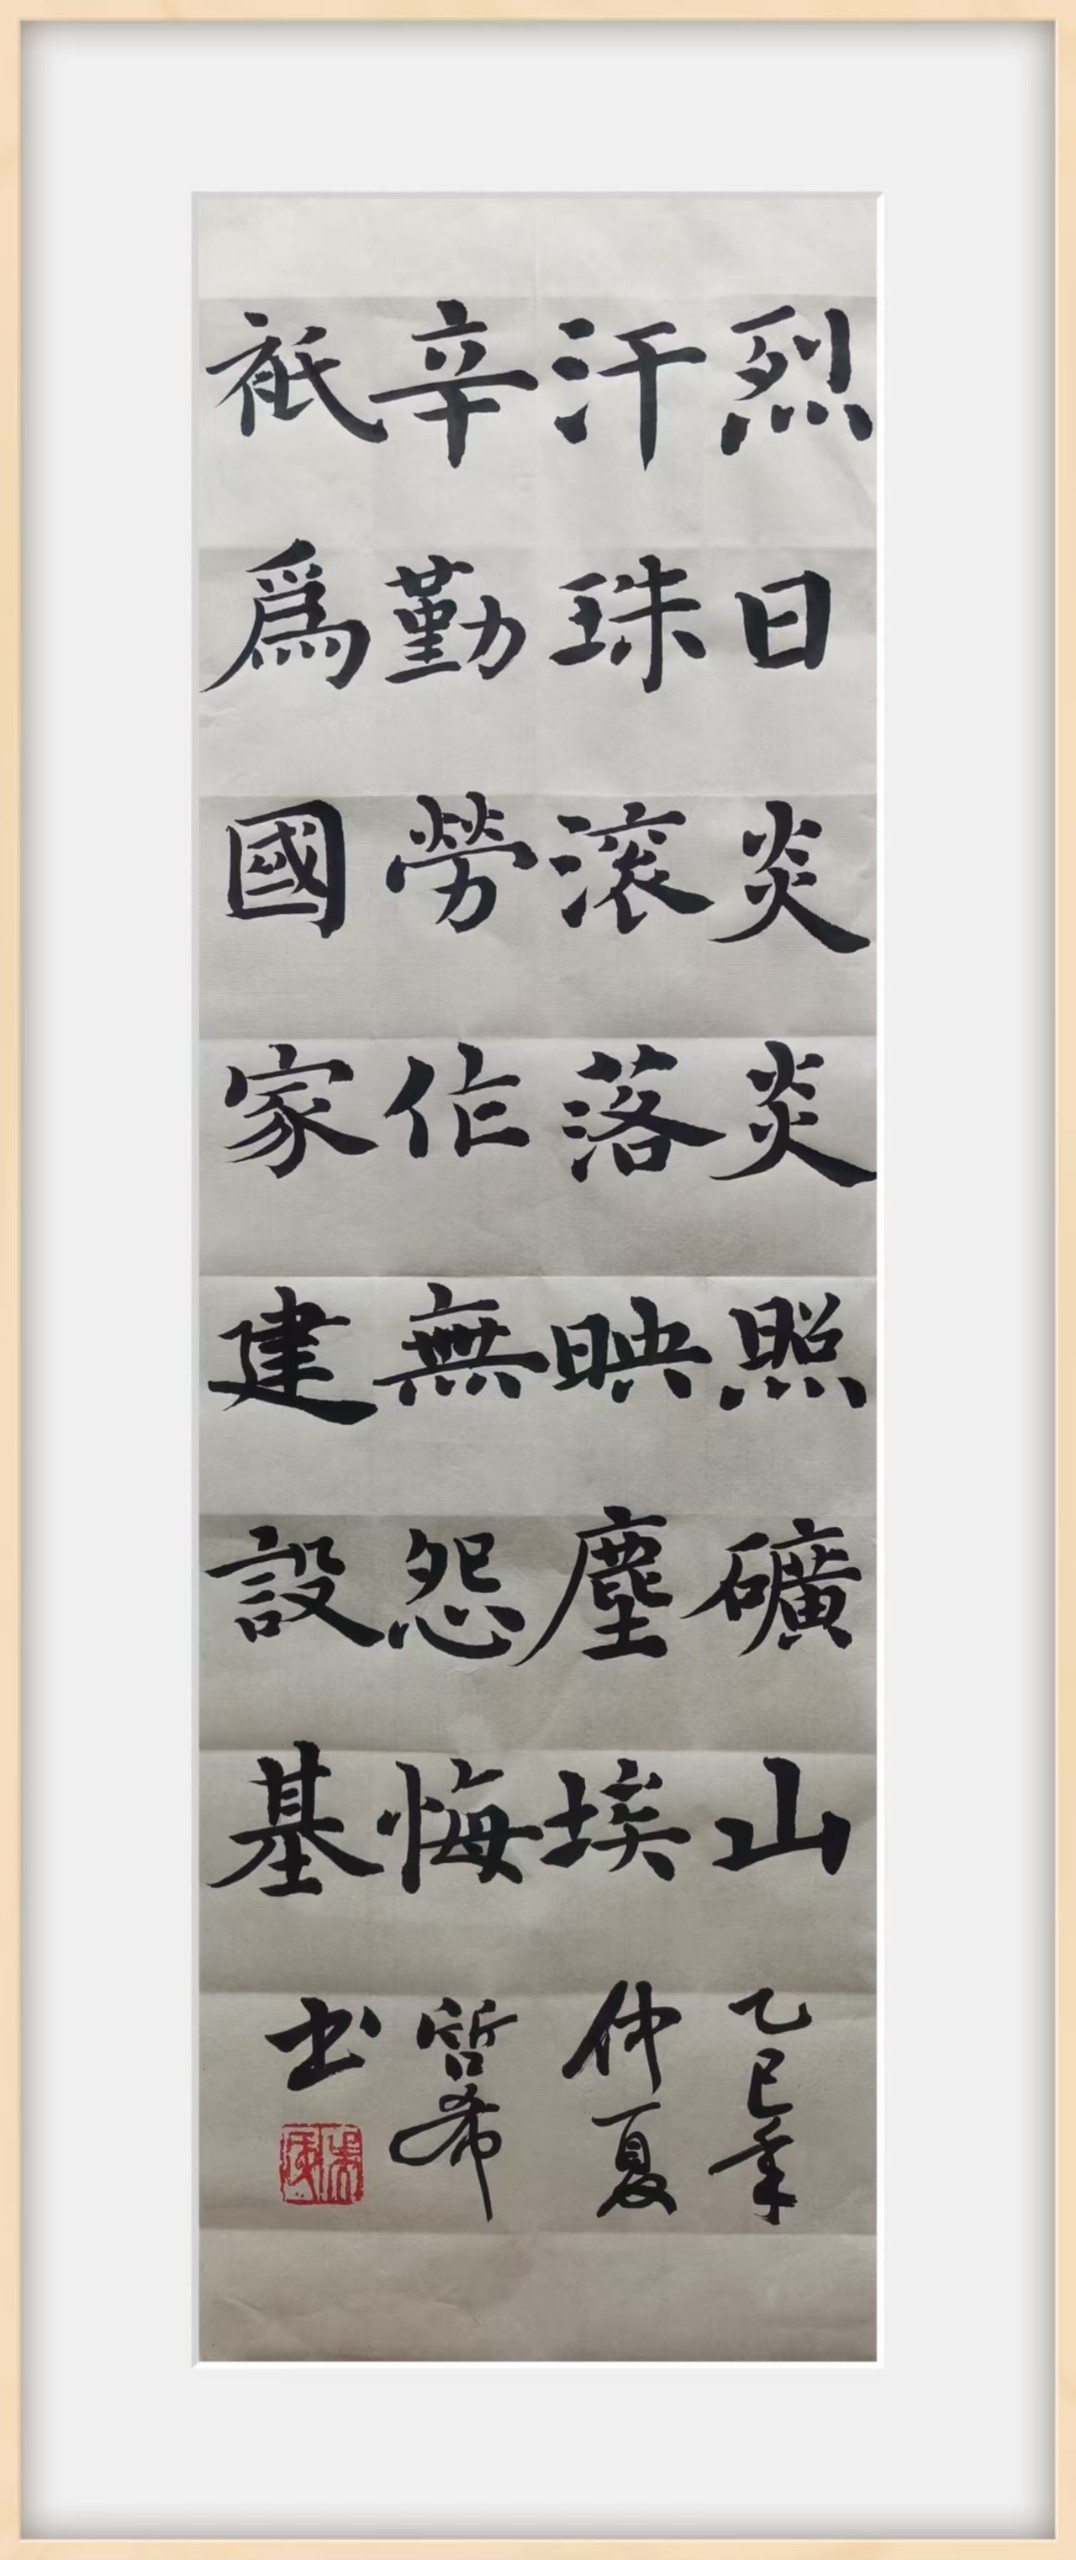 烈日炎炎照礦山
汗珠滚落映塵埃
辛勤勞作無怨悔
祇為國家建設基
乙巳年
仲夏
哲希
书